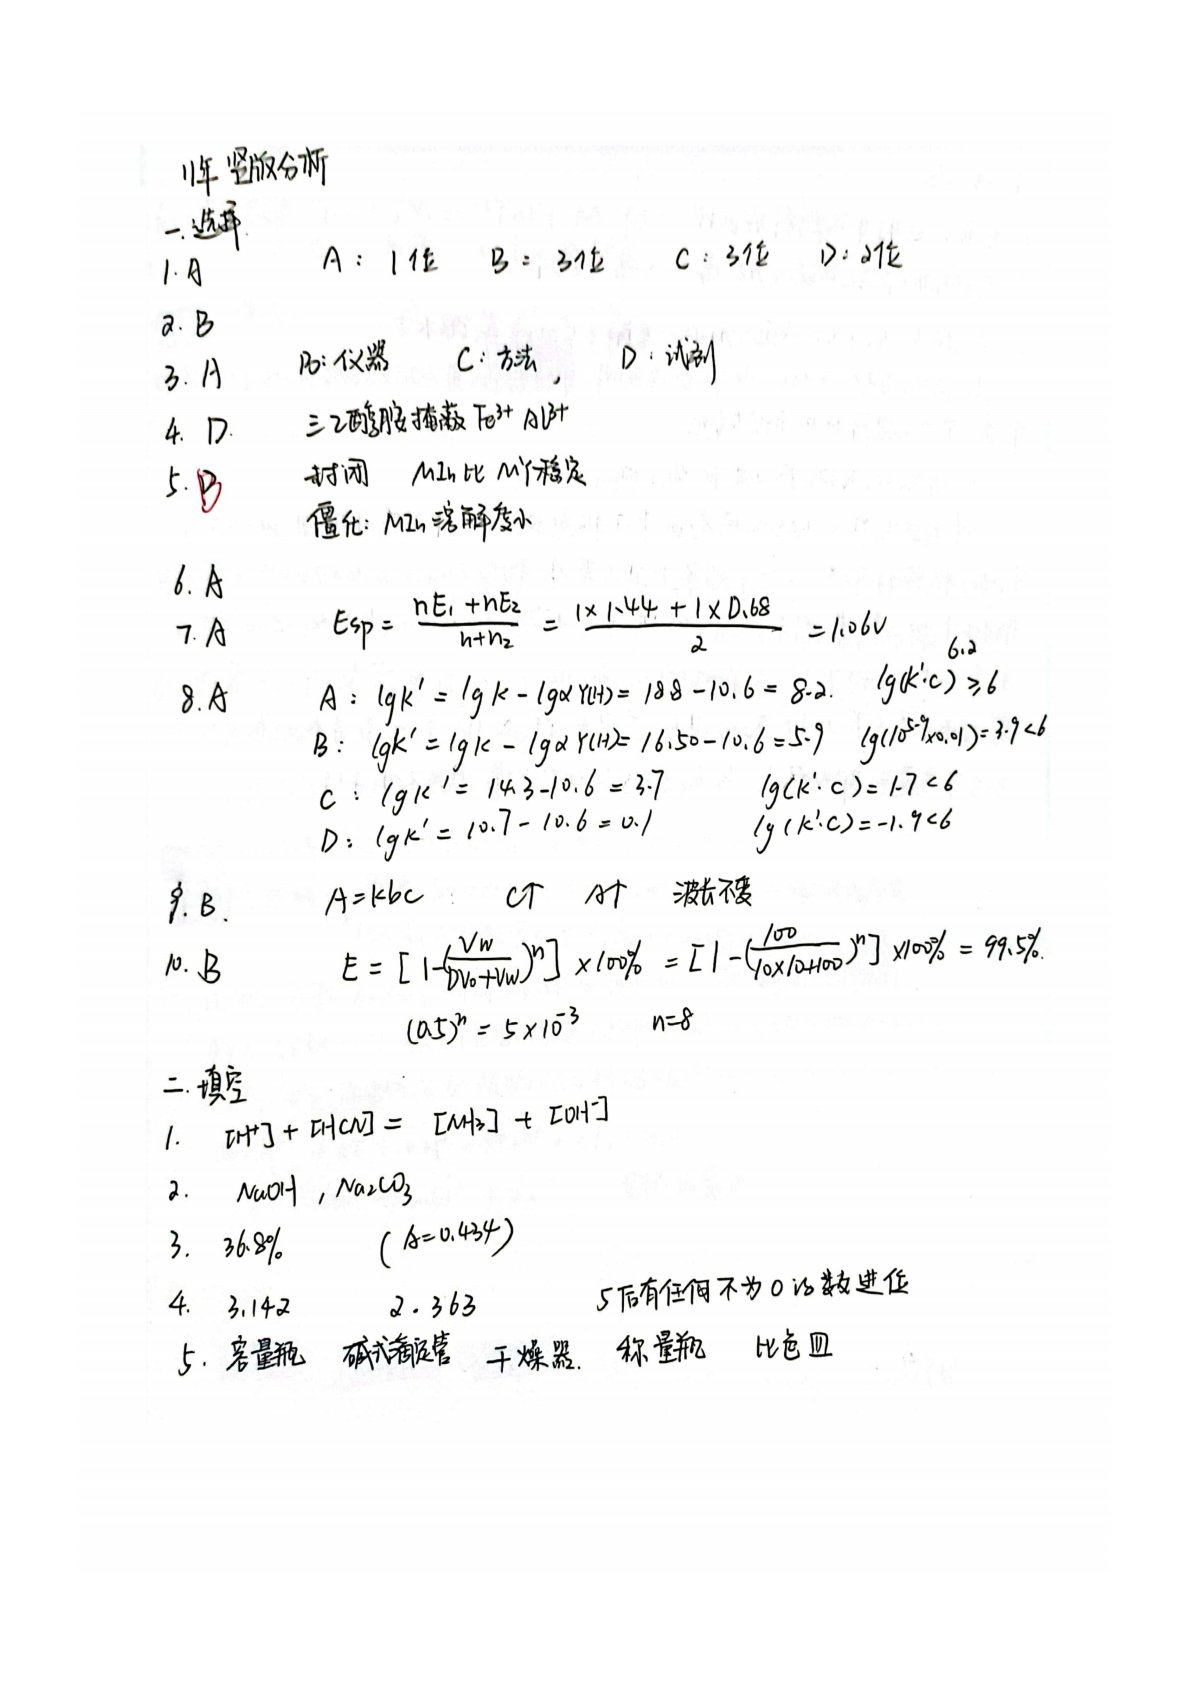 11年 竖版分析
一.选择.
1. A    A: 1位    B: 3位    C: 3位    D: 2位
2. B
3. A    B: 仪器    C: 方法,    D: 试剂
4. D.    三乙醇胺掩蔽 Fe³⁺ Al³⁺
5. B    封闭    MIn比MY稳定
僵化: MIn溶解度小
6. A
7. A    Esp = (nE₁+nE₂)/(n+n₂) = (1×1.44+1×0.68)/2 = 1.06V
8. A    A: lgK' = lgK - lgαY(H) = 18.8-10.6 = 8.2.    lg(K'·c) ≥ 6    6.2
B: lgK' = lgK - lgαY(H) = 16.50-10.6 = 5.9    lg(10^5.9×0.01) = 3.9<6
C: lgK' = 14.3-10.6 = 3.7    lg(K'·C) = 1.7<6
D: lgK' = 10.7-10.6 = 0.1    lg(K'·C) = -1.9<6
9. B.    A=kbc    C↑    A↑    波长不变
10. B    E = [1-(Vw/(DVo+Vw))ⁿ] ×100% = [1-(100/(10×10+100))ⁿ] ×100% = 99.5%.
(0.5)ⁿ = 5×10⁻³    n=8
二.填空
1. [H⁺] + [HCN] = [NH₃] + [OH⁻]
2. NaOH, Na₂CO₃
3. 36.8%    (A=0.434)
4. 3.142    2.363    5后有任何不为0的数进位
5. 容量瓶    碱式滴定管    干燥器.    称量瓶    比色皿